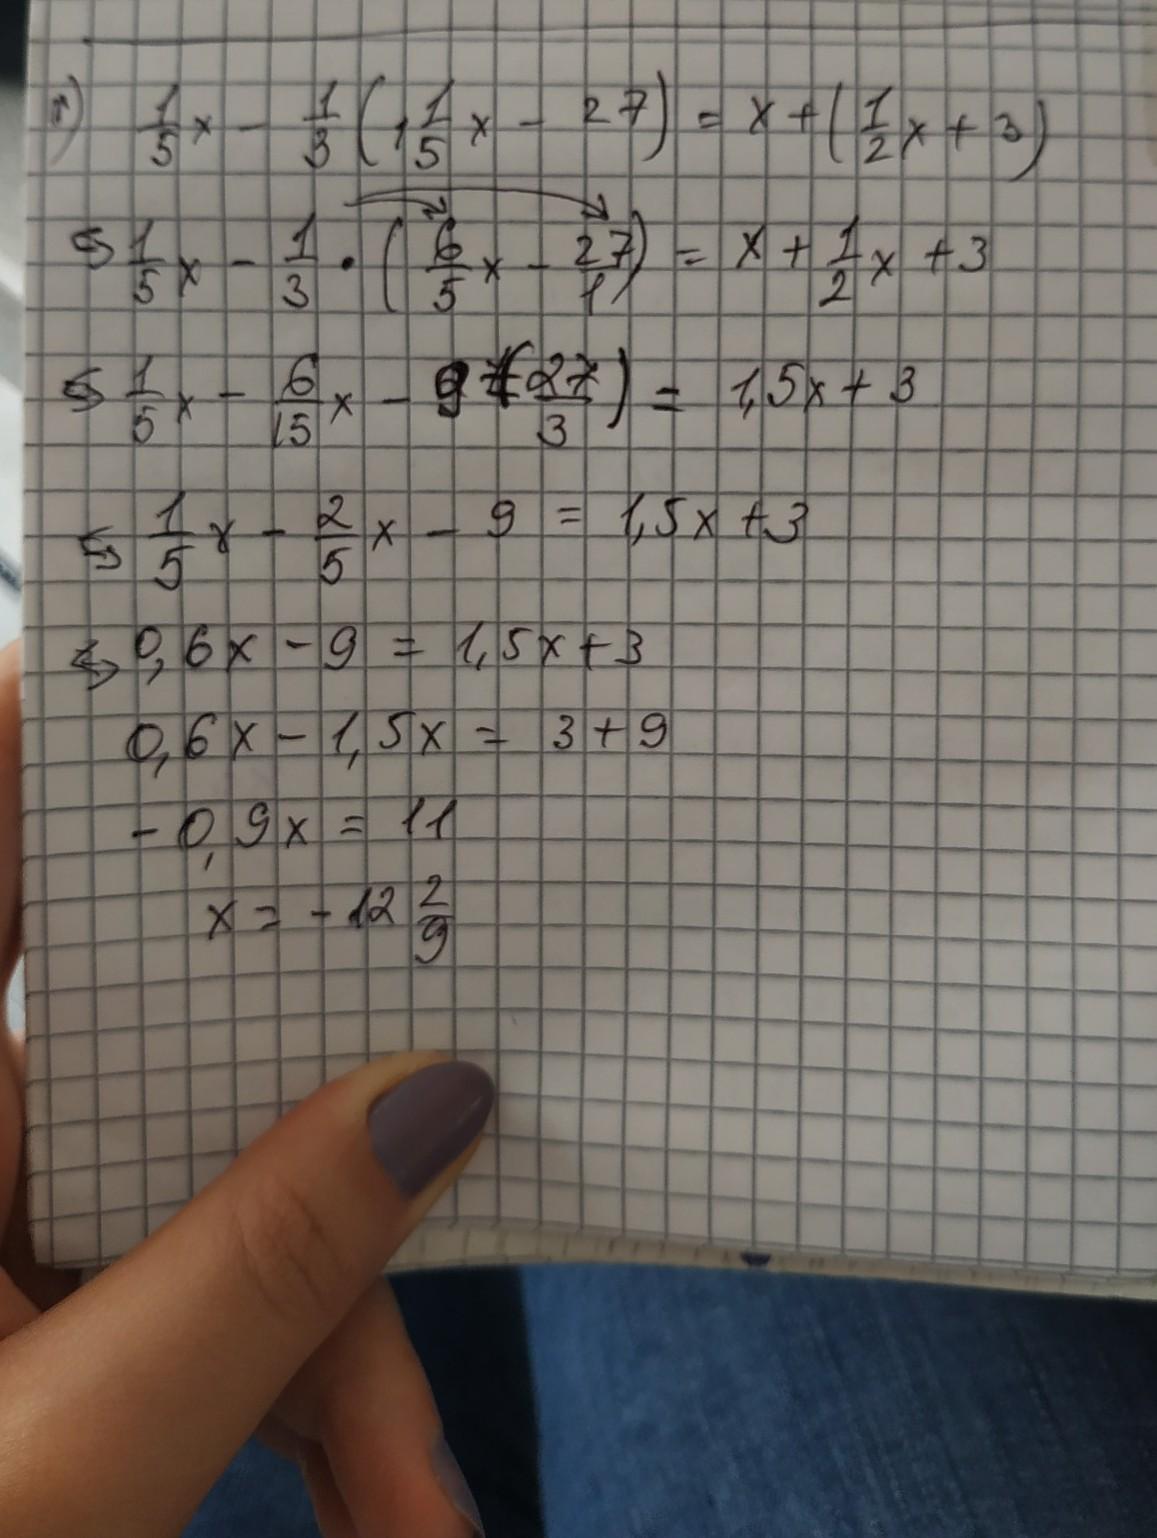 1/5 x - 1/3 (1 1/5 x - 27) = x + (1/2 x + 3)
⇔ 1/5 x - 1/3 · (6/5 x - 27/1) = x + 1/2 x + 3
⇔ 1/5 x - 6/15 x - 9 (27/3) = 1,5x + 3
⇔ 1/5 x - 2/5 x - 9 = 1,5x + 3
⇔ 0,6x - 9 = 1,5x + 3
0,6x - 1,5x = 3 + 9
- 0,9x = 11
x = - 12 2/9